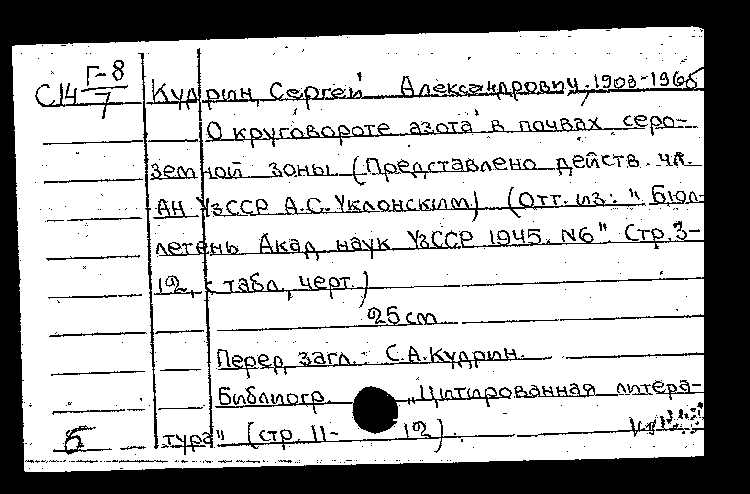 С14 Г-8/7 Кудрин, Сергей Александрович, 1903-1965
О круговороте азота в почвах серо-
земной зоны (Представлено действ. чл.
АН УзССР А.С. Уклонским) (Отт. из: "Бюл-
летень Акад. наук УзССР 1945. N6". Стр. 3-
12, с табл., черт.)
25 cm
Перед загл.: С.А. Кудрин.
Библиогр. „Цитированная литера-
Б тура" (стр. 11- 12).